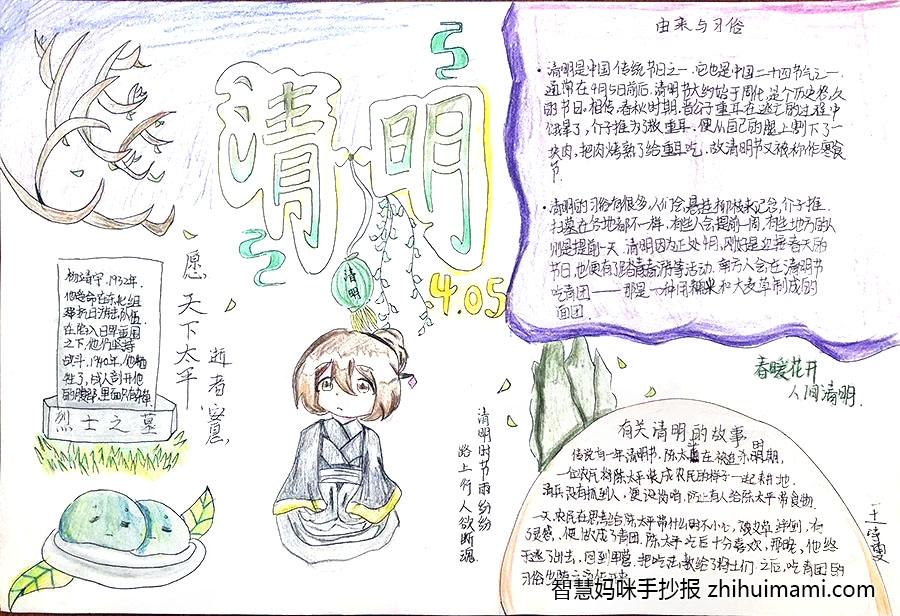 清明
4.05
清明
由来与习俗
·清明是中国传统节日之一,它也是中国二十四节气之一.
通常在4月5日前后.清明节大约始于周代,是个历史悠久
的节日.相传,春秋时期,晋公子重耳在逃亡的过程中
饿晕了,介子推为了救重耳,便从自己的腿上割下了一
块肉,把肉烤熟了给重耳吃.故清明节又被称作寒食
节.
·清明的习俗有很多,人们会悬挂柳枝来纪念介子推.
扫墓在各地都不一样,有些人会提前一周,有些地方
则是提前一天.清明因为正处4月,刚好是迎接春天的
节日,也便有了踏青春游等活动.南方人会在清明节
吃青团——那是一种用糯米和大麦草制成的
面团.
愿天下太平
逝者安息
杨靖宇,1932年,
他受命在东北组
织抗日游击队伍.
在陷入日军重围
之下,他仍坚持
战斗.1940年,他牺
牲了,敌人剖开他
的腹部,里面只有野草
烈士之墓
清明时节雨纷纷
路上行人欲断魂.
春暖花开
人间清明.
有关清明的故事
传说有一年清明节,陈太平在被追
一位农民将陈太平装成农民的样子一起耕地.
清兵没有抓到人,便设岗哨,防止有人给陈太平带食物.
一天,农民在思考给陈太平带什么时不小心被艾草绊到,有
了灵感,便做成了青团.陈太平吃后十分喜欢,那晚,他终
于逃了出去,回到军营.把吃法教给了将士们.之后,吃青团的
习俗
智慧妈咪手抄报 zhihuimami.com